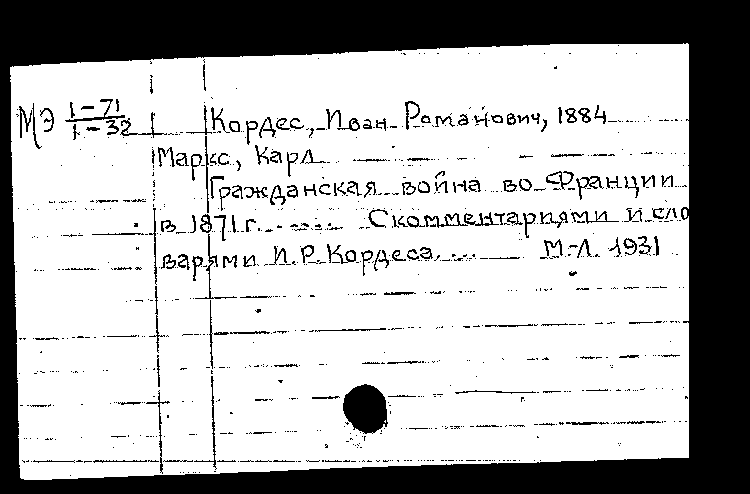 МЭ 1-71
1-32
Кордес, Иван Романович, 1884
Маркс, Карл
Гражданская война во Франции
в 1871 г. ...... С комментариями и сло
варями И.Р. Кордеса .... М.-Л. 1931